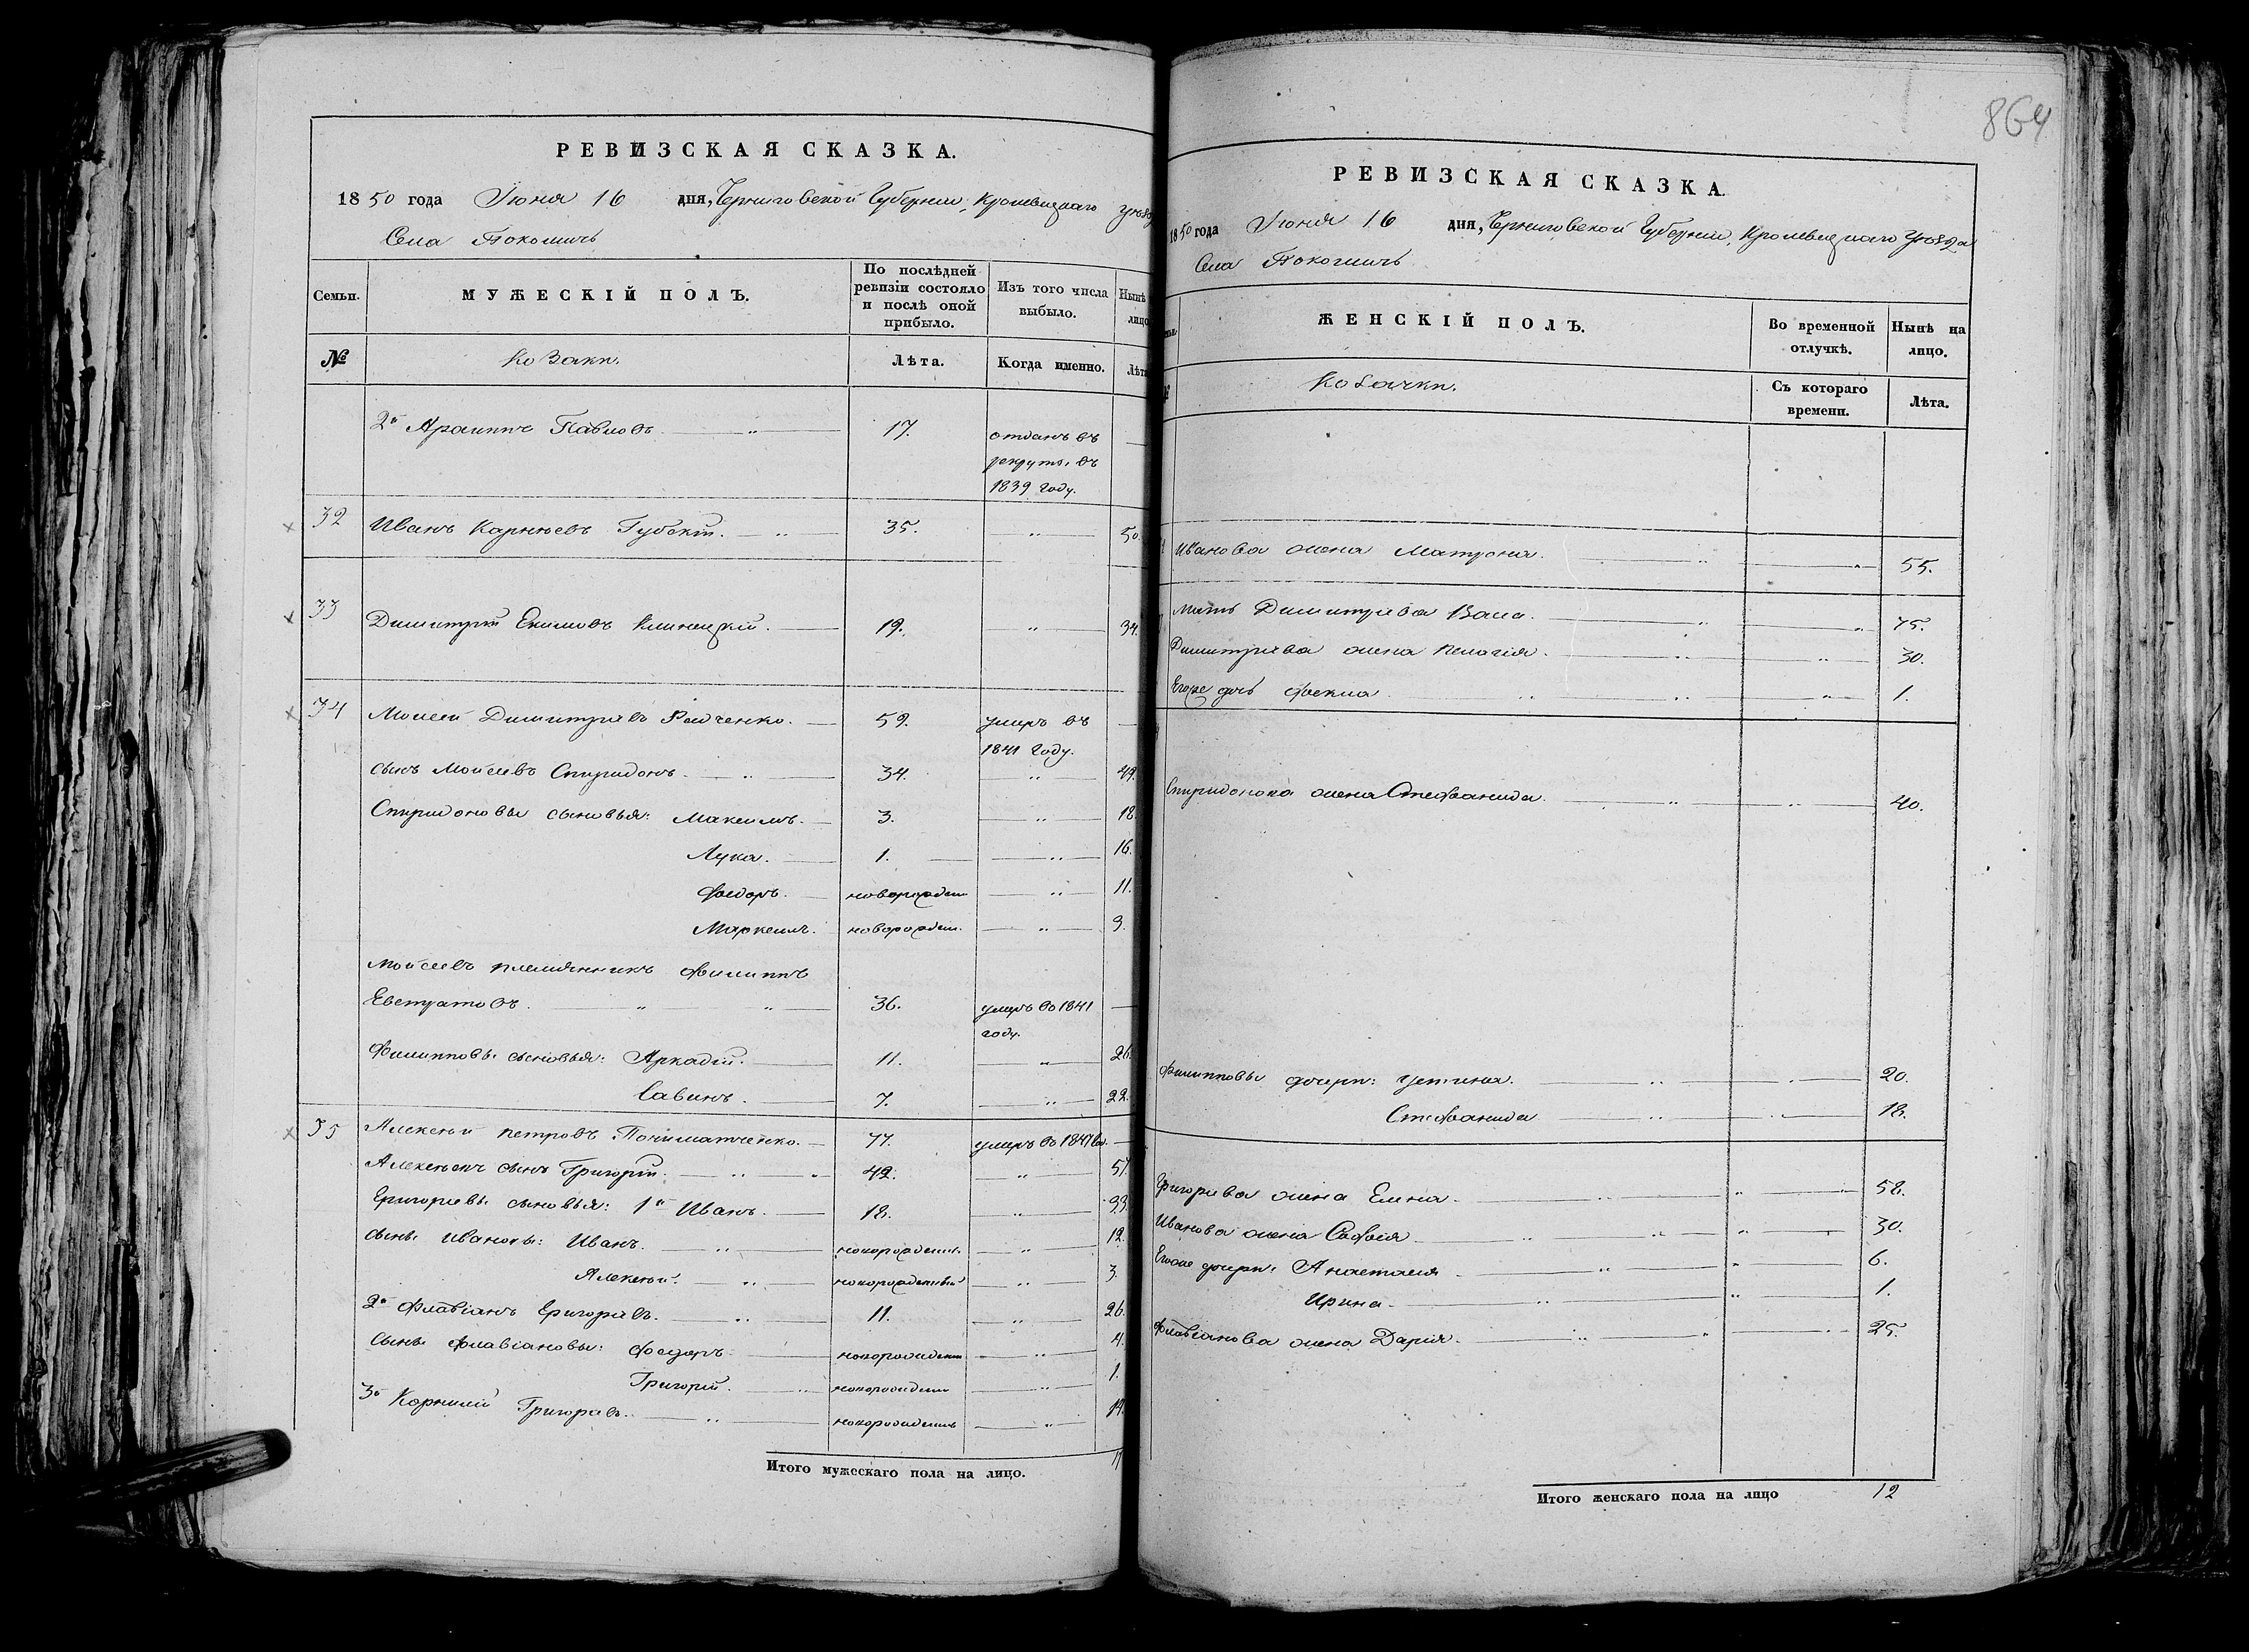 864
РЕВИЗСКАЯ СКАЗКА.
1850 года Іюня 16 дня, Черниговской Губерніи, Кролевецкаго уѣзда
Села Покошичь
Семьи.
МУЖЕСКІЙ ПОЛЪ.
По послѣдней ревизіи состояло и послѣ оной прибыло.
Изъ того числа выбыло.
Нынѣ
лицо
№
Козаки.
Лѣта.
Когда именно.
Лѣта
2й Архипъ Павловъ 17. отданъ въ
рекруты въ
1839 году.
32 Иванъ Карнѣевъ Губскій. 35. " 50.
33 Димитрій Екимовъ Клинецкій. 19. " 34.
34 Моисей Димитріевъ Радченко. 59. умеръ въ
1841 году.
сынъ Мойсеевъ Спиридонъ. 34. " 49.
Спиридоновы сыновья: Максимъ. 3. " 18.
Лука. 1. " 16.
Федоръ. новорожден " 11.
Маркелъ. новорожден. " 9.
Мойсеевъ племянникъ Филиппъ
Евстратовъ. 36. умеръ во 1841
году.
Филипповы сыновья: Аркадій. 11. " 26.
Савинъ. 7. " 22.
35 Алексѣй Петровъ 77. умеръ во 1847
Алексѣевъ сынъ Григорій. 42. " 57.
Григоріевы сыновья: 1й Иванъ. 18. " 33.
сыны Ивановы: Иванъ. новорожденъ. " 12.
Алексѣй. новорожденный " 3.
2й Флавіанъ Григоріевъ. 11. " 26.
Сыны Флавіановы: Федоръ. новорожденъ " 4.
Григорій. новорожден " 1.
3й Корнилій Григоріевъ. новорожденъ " 14.
Итого мужескаго пола на лицо.
РЕВИЗСКАЯ СКАЗКА.
1850 года Іюня 16 дня, Черниговской Губерніи, Кролевецкаго Уѣзда
Села Покошичь
ЖЕНСКІЙ ПОЛЪ.
Во временной отлучкѣ.
Нынѣ на лицо.
Козачки.
Съ котораго времени.
Лѣта.
Иванова жена Матрона. 55.
Мать Димитріева Васса. 75.
Димитріева жена Пелагія. 30.
Егоже дочь Фекла. 1.
Спиридонова жена Стефанида. 40.
Филипповы дочери: Устинія. 20.
Стефанида 18.
Григоріева жена Елена. 58.
Иванова жена Софія 30.
Егоже дочери: Анастасія 6.
Ирина. 1.
Флавіанова жена Дарія. 25.
Итого женскаго пола на лицо 12